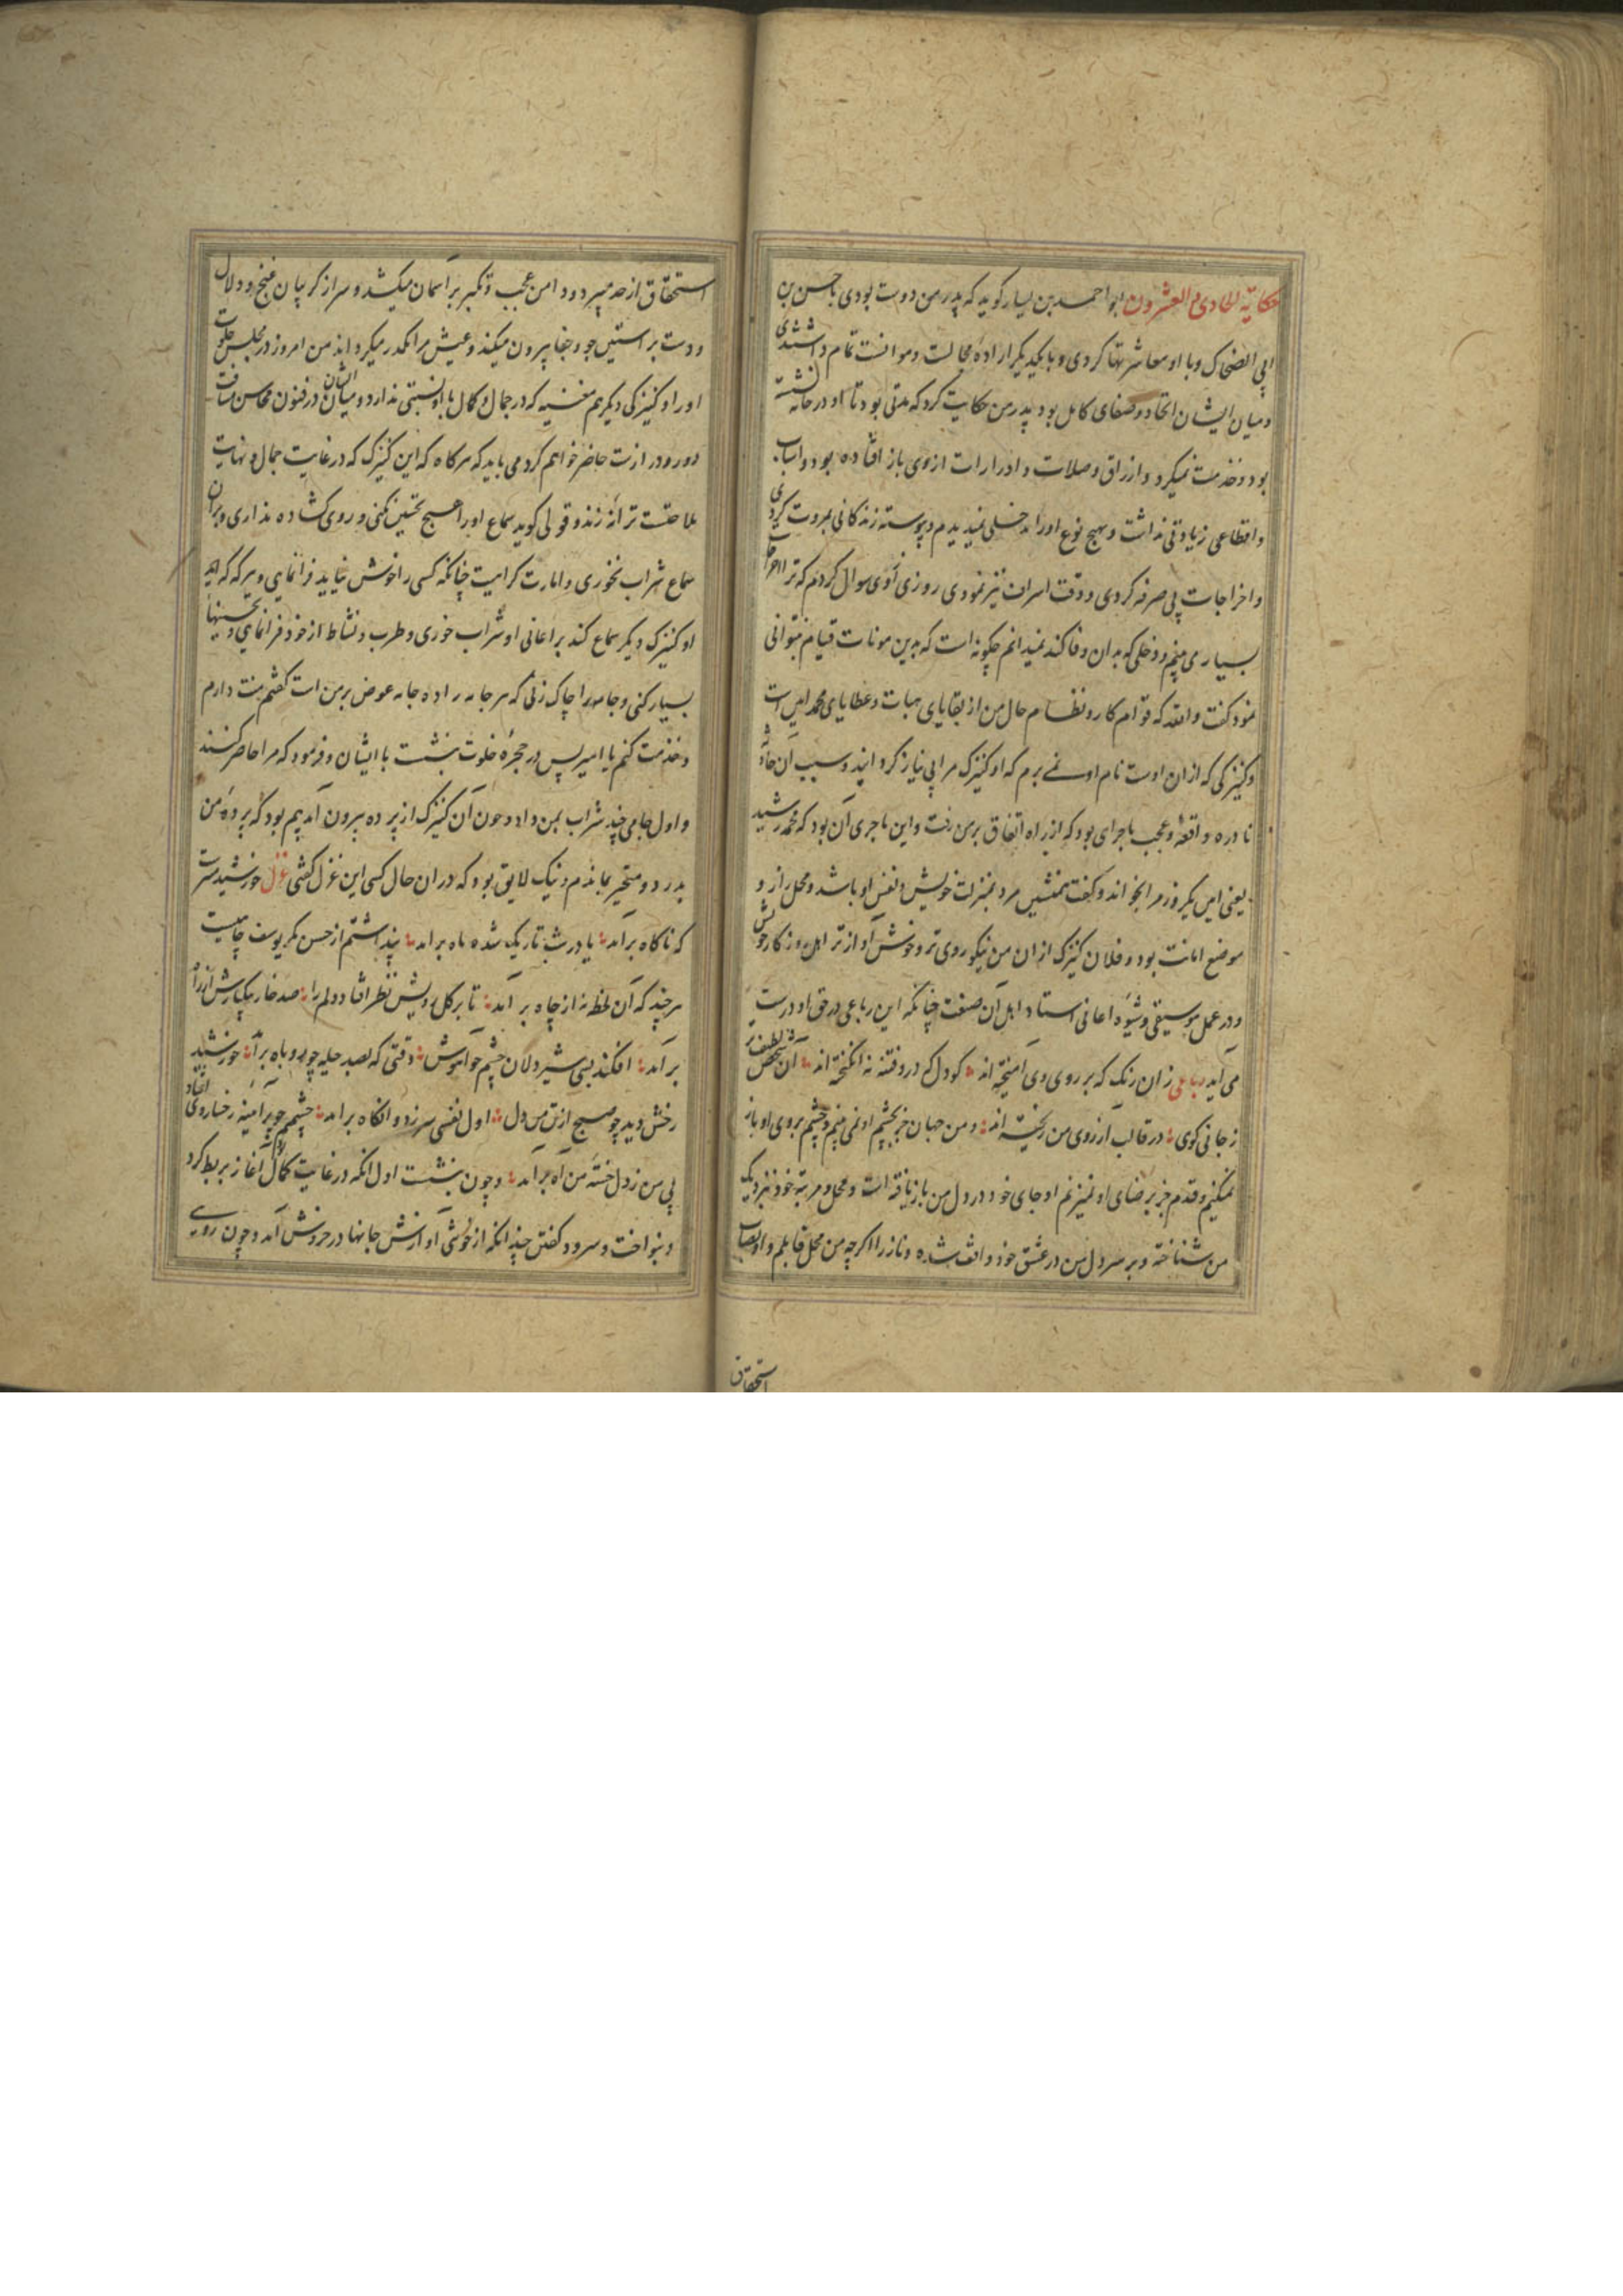 حکایة الحادی و العشرون ابو احمد بن یسار گوید که پدر من دوست بودی با حسن بن
ابی الضحاک و با او معاشرتها کردی و با یکدیگر ارادهٔ مجالست و موانست تمام داشتندی
و میان ایشان اتحاد و صفای کامل بود پدر من حکایت کرد که مدتی بود تا او در خانه نشسته
بود و خدمت نمیکرد و ارزاق و صلات و ادرارات از وی باز افتاده بود و اسباب
و اقطاعی زیادتی نداشت و بهیچ نوع او را دخلی نمیدیدم و پیوسته زندگانی بمروت کردی
و اخراجات بی صرفه کردی و وقت اسراف نیز نمودی روزی از وی سوال کردم که ترا اخراجات
بسیار می بینم و دخلی که بدان وفا کند نمیدانم چگونه است که بدین مونات قیام میتوانی
نمود گفت والله که قوام کار و نظام حال من از بقایای هبات و عطایای محمد امین است
و کنیزکی که از آن اوست نام او نمی برم که او کنیزک مرا بی نیاز گردانید و سبب آن حادثه
نادره و واقعهٔ و عجب ماجرای بود که از راه اتفاق بر من رفت و این ماجری آن بود که محمد رشید
یعنی امین یکروز مرا بخواند و گفت همنشین مرد بمنزلت خویش و نفس او باشد و محل راز و
موضع امانت بود و فلان کنیزک از آن من نیکو روی تر و خوش آواز تر اهل روزگار خویش
و در عمل موسیقی و شیوهٔ اغانی استاد اهل آن صنعت چنانکه این رباعی در حق او درست
می آید رباعی زان رنگ که بر روی وی آمیخته اند کو دل که درو فتنه نه انگیخته اند آن شخص لطیف تر
ز جانی گوی در قالب آرزوی من ریخته اند و من جهان جز بچشم او نمی بینم و چشم بروی او باز
نمیکنم و قدم جز برضای او نمیزنم او جای خود در دل من باز یافته است و محل و مرتبهٔ خود نزدیک
من شناخته و بر سر دل من در عشق خود واقف شده و ناز را اگرچه من محل قابلم و او بصاب
استحقاق
استحقاق از حد میبرد و دامن عجب و تکبر بر آسمان میکشد و سر از گریبان غنج و دلال
و دست بر آستین جور و جفا بیرون میکند و عیش مرا مکدر میگرداند من امروز در مجلس خلوت
او را و کنیزکی دیگر هم مغنیه که در جمال و کمال با او نسبتی ندارد و میان ایشان در فنون محاسن مسافت
دور و دراز ست حاضر خواهم کرد می باید که هرگاه که این کنیزک که در غایت جمال و نهایت
ملاحتست ترانه زند و قولی گوید سماع او را هیچ تحسین نکنی و روی گشاده نداری و بران
سماع شراب نخوری و امارت کراهیت چنانکه کسی را خوش نیاید فرا نمایی و هرگه که این
او کنیزک دیگر سماع کند بر اغانی او شراب خوری و طرب و نشاط از خود فرا نمایی و تحسینها
بسیار کنی و جامه را چاک زنی که هر جامه را ده جامه عوض بر من است گفتم منت دارم
و خدمت کنم یا امیر پس در حجرهٔ خلوت بنشست با ایشان و فرمود که مرا حاضر کنند
و اول جامی چند شراب بمن داد و چون آن کنیزک از پرده بیرون آمد بیم بود که پردهٔ من
بدرد و متحیر بماندم و نیک لایق بود که در آن حال کسی این غزل گفتی غزل خورشید است
که ناگاه برآمد یا در شب تاریک شده ماه برآمد پنداشتم از حسن مگر یوسف چاهیست
هر چند که آن لحظه نه از چاه برآمد تا بر گل رویش نظر افتاد دلم را صد خار بیکبارش از راه
برآمد افکند بسی شیر دلان چشم چو آهوش وقتی که بصد حیله چو روباه برآمد خورشید
رخش دید چو صبح از تن من دل اول نفسی سرزد و آنگاه برآمد چشمم چو بر آیینهٔ رخسار وی افتاد
بی من ز دل خستهٔ من آه برآمد و چون بنشست اول آنکه در غایت کمال آغاز بربط کرد
و بنواخت و سرود گفتن چندانکه از خوشی آوازش جانها در خروش آمد و چون روی